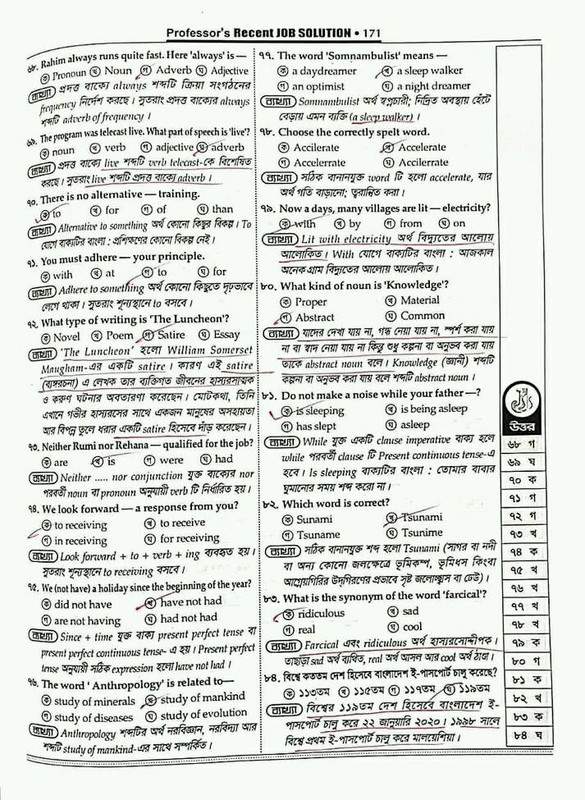 Professor's Recent JOB SOLUTION • 171
৬৮. Rahim always runs quite fast. Here 'always' is —
ক Pronoun খ Noun গ Adverb ঘ Adjective
ব্যাখ্যা প্রদত্ত বাক্যে always শব্দটি ক্রিয়া সংগঠনের
frequency নির্দেশ করছে। সুতরাং প্রদত্ত বাক্যের always
শব্দটি adverb of frequency।
৬৯. The program was telecast live. What part of speech is 'live'?
ক noun খ verb গ adjective ঘ adverb
ব্যাখ্যা প্রদত্ত বাক্যে live শব্দটি verb telecast-কে বিশেষিত
করছে। সুতরাং live শব্দটি প্রদত্ত বাক্যে adverb।
৭০. There is no alternative — training.
ক to খ for গ of ঘ than
ব্যাখ্যা Alternative to something অর্থ কোনো কিছুর বিকল্প। To
যোগে বাক্যটির বাংলা : প্রশিক্ষণের কোনো বিকল্প নেই।
৭১. You must adhere — your principle.
ক with খ at গ to ঘ for
ব্যাখ্যা Adhere to something অর্থ কোনো কিছুতে দৃঢ়ভাবে
লেগে থাকা। সুতরাং শূন্যস্থানে to বসবে।
৭২. What type of writing is 'The Luncheon'?
ক Novel খ Poem গ Satire ঘ Essay
ব্যাখ্যা 'The Luncheon' হলো William Somerset
Maugham-এর একটি satire। কারণ এই satire
(ব্যঙ্গরচনা) এ লেখক তার ব্যক্তিগত জীবনের হাস্যরসাত্মক
ও করুণ ঘটনার অবতারণা করেছেন। মোটকথা, তিনি
এখানে গভীর হাস্যরসের সাথে একজন মানুষের অসহায়তা
আর বিপন্ন তুলে ধরার একটি satire হিসেবে দাঁড় করেছেন।
৭৩. Neither Rumi nor Rehana — qualified for the job?
ক are খ is গ were ঘ had
ব্যাখ্যা Neither ..... nor conjunction যুক্ত বাক্যের nor
পরবর্তী noun বা pronoun অনুযায়ী verb টি নির্ধারিত হয়।
৭৪. We look forward — a response from you?
ক to receiving খ to receive
গ in receiving ঘ for receiving
ব্যাখ্যা Look forward + to + verb + ing ব্যবহৃত হয়।
সুতরাং শূন্যস্থানে to receiving বসবে।
৭৫. We (not have) a holiday since the beginning of the year?
ক did not have খ have not had
গ are not having ঘ had not had
ব্যাখ্যা Since + time যুক্ত বাক্য present perfect tense বা
present perfect continuous tense- এ হয়। Present perfect
tense অনুযায়ী সঠিক expression হলো have not had।
৭৬. The word ' Anthropology' is related to—
ক study of minerals খ study of mankind
গ study of diseases ঘ study of evolution
ব্যাখ্যা Anthropology শব্দটির অর্থ নরবিজ্ঞান, নরবিদ্যা আর
শব্দটি study of mankind-এর সাথে সম্পর্কিত।
৭৭. The word 'Somnambulist' means —
ক a daydreamer খ a sleep walker
গ an optimist ঘ a night dreamer
ব্যাখ্যা Somnambulist অর্থ স্বপ্নচারী; নিদ্রিত অবস্থায় হেঁটে
বেড়ায় এমন ব্যক্তি (a sleep walker)।
৭৮. Choose the correctly spelt word.
ক Accilerate খ Accelerate
গ Accelerrate ঘ Accilerrate
ব্যাখ্যা সঠিক বানানযুক্ত word টি হলো accelerate, যার
অর্থ গতি বাড়ানো; ত্বরান্বিত করা।
৭৯. Now a days, many villages are lit — electricity?
ক with খ by গ from ঘ on
ব্যাখ্যা Lit with electricity অর্থ বিদ্যুতের আলোয়
আলোকিত। With যোগে বাক্যটির বাংলা : আজকাল
অনেক গ্রাম বিদ্যুতের আলোয় আলোকিত।
৮০. What kind of noun is 'Knowledge'?
ক Proper খ Material
গ Abstract ঘ Common
ব্যাখ্যা যাদের দেখা যায় না, গন্ধ নেয়া যায় না, স্পর্শ করা যায়
না বা স্বাদ নেয়া যায় না কিন্তু শুধু কল্পনা বা অনুভব করা যায়
তাকে abstract noun বলে। Knowledge (জ্ঞানী) শব্দটি
কল্পনা বা অনুভব করা যায় বলে শব্দটি abstract noun।
৮১. Do not make a noise while your father —?
ক is sleeping খ is being asleep
গ has slept ঘ asleep
ব্যাখ্যা While যুক্ত একটি clause imperative বাক্য হলে
while পরবর্তী clause টি Present continuous tense-এ
হবে। Is sleeping বাক্যটির বাংলা : তোমার বাবার
ঘুমানোর সময় শব্দ করো না।
৮২. Which word is correct?
ক Sunami খ Tsunami
গ Tsuname ঘ Tsunime
ব্যাখ্যা সঠিক বানানযুক্ত শব্দ হলো Tsunami (সাগর বা নদী
বা অন্য কোনো জলক্ষেত্রে ভূমিকম্প, ভূমিধস কিংবা
আগ্নেয়গিরির উদ্গিরণের প্রভাবে সৃষ্ট জলোচ্ছ্বাস বা ঢেউ)।
৮৩. What is the synonym of the word 'farcical'?
ক ridiculous খ sad
গ real ঘ cool
ব্যাখ্যা Farcical এবং ridiculous অর্থ হাস্যরসোদ্দীপক।
তাছাড়া sad অর্থ ব্যথিত, real অর্থ আসল আর cool অর্থ ঠান্ডা।
৮৪. বিশ্বে কততম দেশ হিসেবে বাংলাদেশ ই-পাসপোর্ট চালু করেছে?
ক ১১৩তম খ ১১৫তম গ ১১৭তম ঘ ১১৯তম
ব্যাখ্যা বিশ্বের ১১৯তম দেশ হিসেবে বাংলাদেশ ই-
পাসপোর্ট চালু করে ২২ জানুয়ারি ২০২০। ১৯৯৮ সালে
বিশ্বে প্রথম ই-পাসপোর্ট চালু করে মালয়েশিয়া।
উত্তর
৬৮ গ
৬৯ ঘ
৭০ ক
৭১ গ
৭২ গ
৭৩ খ
৭৪ ক
৭৫ খ
৭৬ খ
৭৭ খ
৭৮ খ
৭৯ ক
৮০ গ
৮১ ক
৮২ খ
৮৩ ক
৮৪ ঘ